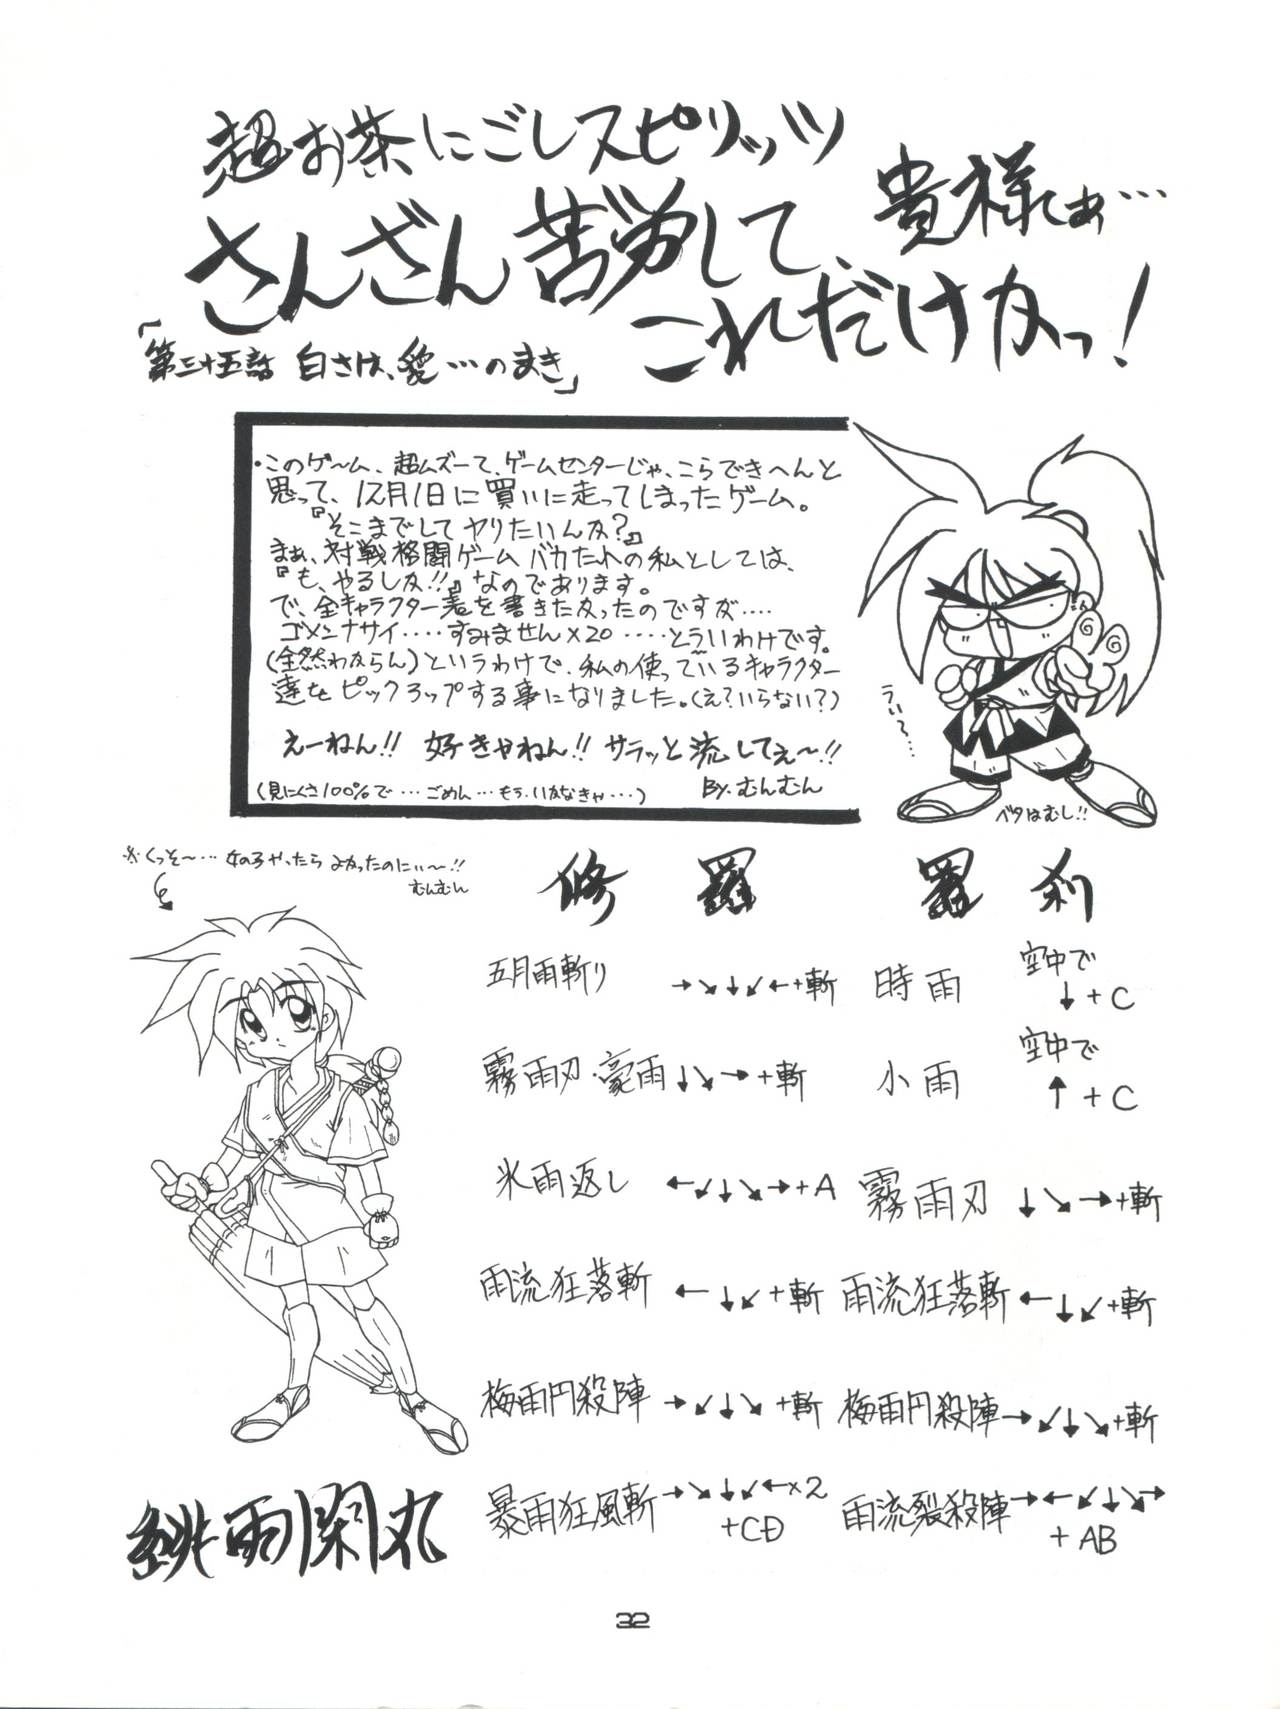 超お茶にごしスピリッツ
さんざん苦労して、
貴様しぁ…
これだけカっ!
「第三十五話 白さは、愛…のまき」
・このゲーム、超ムズーて、ゲームセンターじゃ、こらできへんと
思って、12月1日に買いに走ってしまったゲーム。
『そこまでしてヤりたいんか?』
まぁ、対戦格闘ゲームバカたれの私としては、
『も、やるしか!!』なのであります。
で、全キャラクター表を書きたかったのですが‥‥
ゴメンナサイ‥‥すみません×20‥‥とういわけです。
(全然わからん)というわけで、私の使っているキャラクター
達をピックろップする事になりました。(え?いらない?)
えーねん!! 好きやねん!! サラッと流してぇ〜!!
(見にくさ100%で…ごめん…もう、いかなきゃ…)
By.むんむん
うぃ〜…
ベタはむし!!
※くっそ〜… 女の子やったら よかったのにぃ〜!!
むんむん
修羅 羅刹
五月雨斬り →↘↓↙←+斬 時雨 空中で↓+C
霧雨刃・豪雨 ↓↘→+斬 小雨 空中で↑+C
氷雨返し ←↙↓↘→+A 霧雨刃 ↓↘→+斬
雨流狂落斬 ←↓↙+斬 雨流狂落斬 ←↓↙+斬
梅雨円殺陣 →↙↓↘+斬 梅雨円殺陣 →↙↓↘+斬
暴雨狂風斬 →↘↓↙←×2+CD 雨流裂殺陣 →←↙↓↘→+AB
緋雨閑丸
32